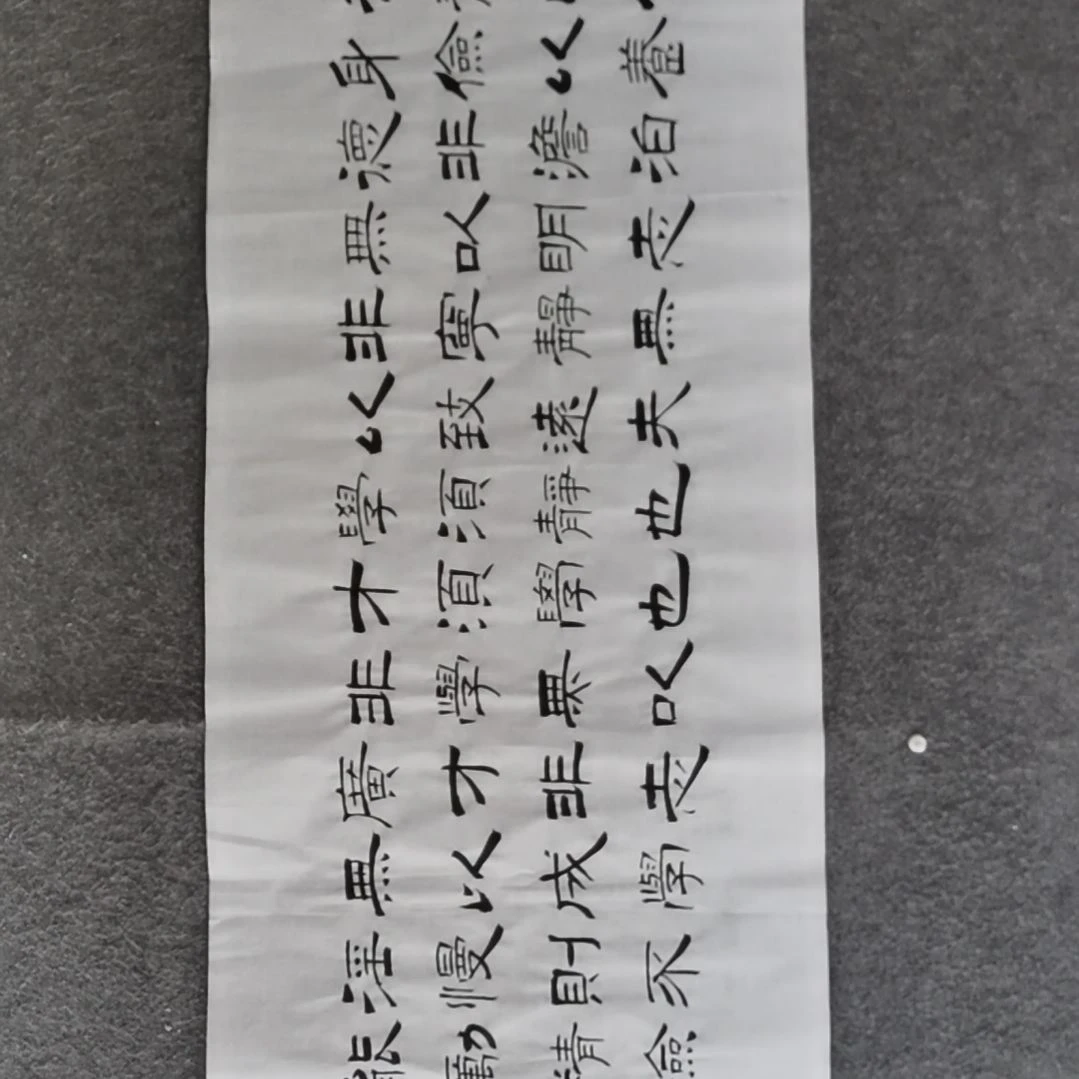 身儉以養
德非澹泊
無以明志
非寧靜無
以致遠夫
學須靜也
才須學也
非學無以
廣才非志
無以成學
淫慢則不
能勵精險